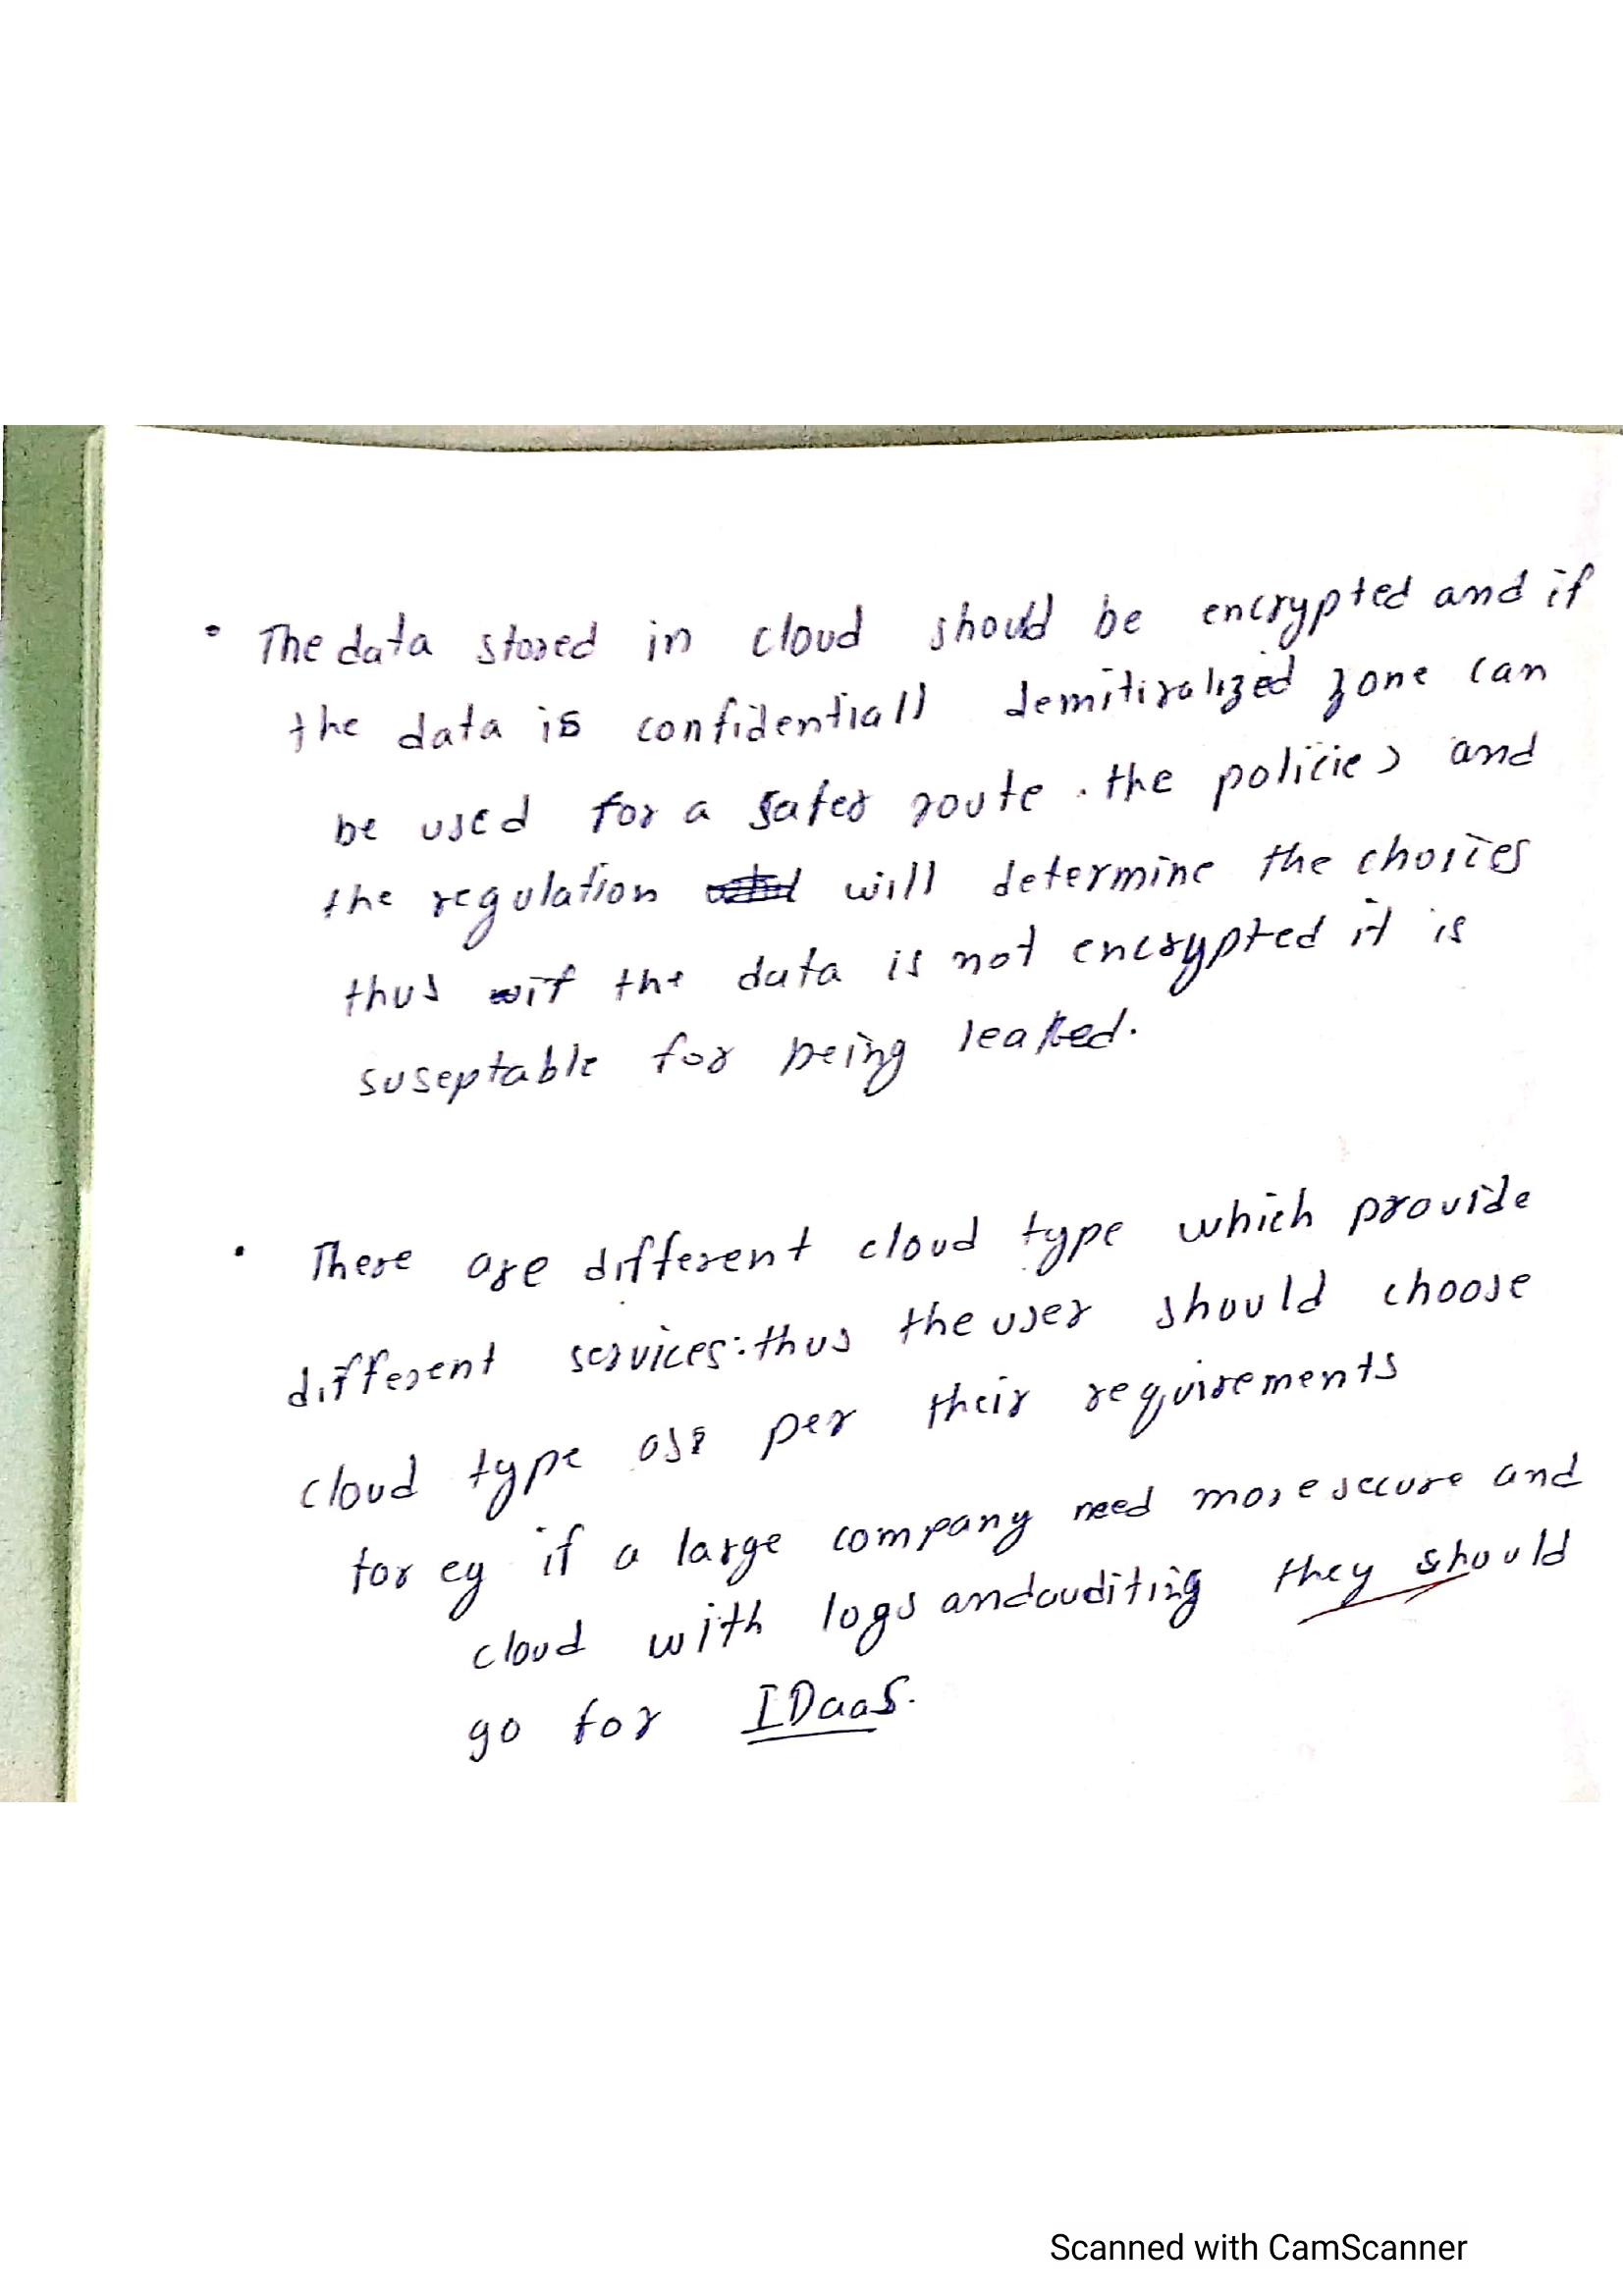 • The data stored in cloud should be encrypted and if
the data is confidentiall demitiralized zone can
be used for a safer route. the policies and
the regulation will determine the choices
thus if the data is not encrypted it is
suseptable for being leaked.
• There are different cloud type which provide
different services. thus the user should choose
cloud type as per their requirements
for eg if a large company need more secure and
cloud with logs and auditing they should
go for IDaaS.
Scanned with CamScanner